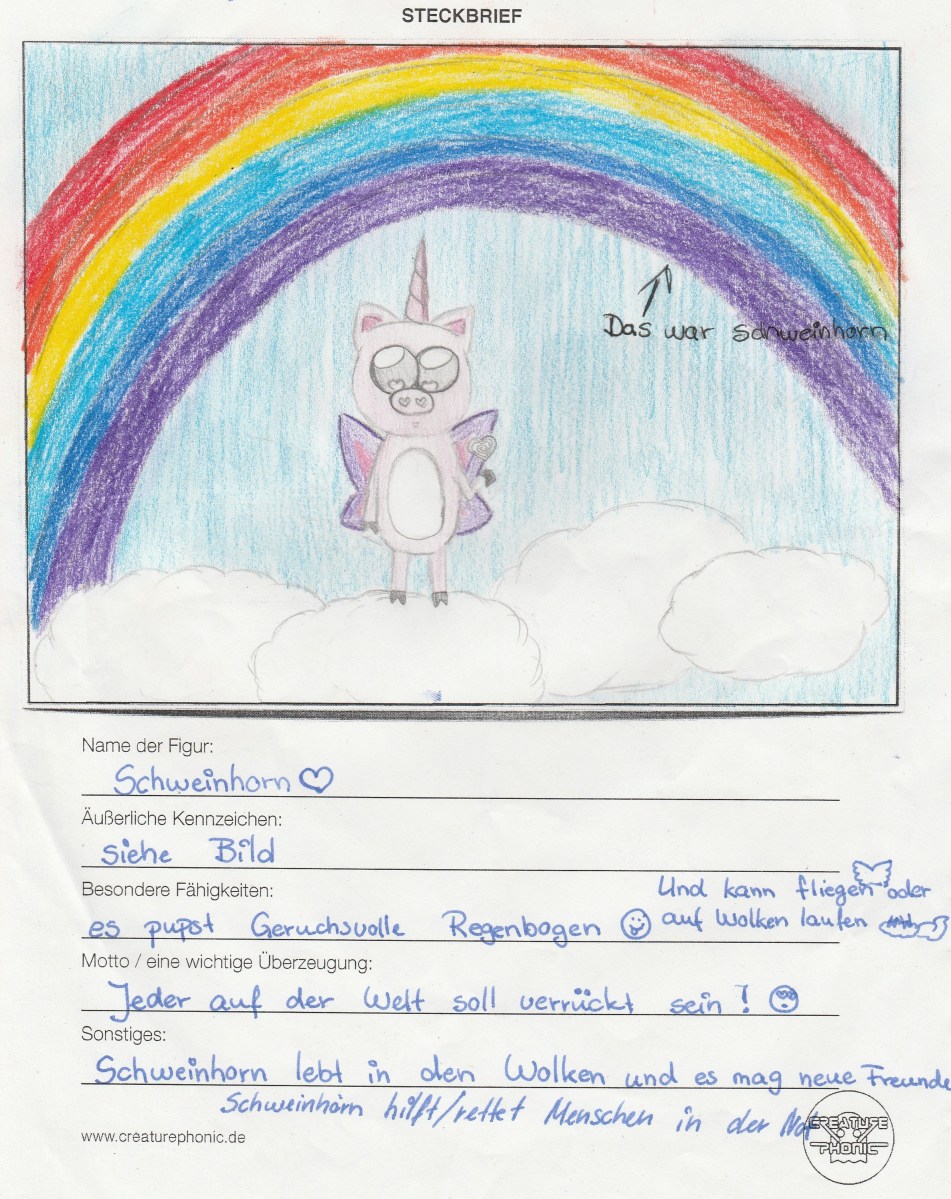 STECKBRIEF
Das war schweinhorn
Name der Figur:
Schweinhorn
Äußerliche Kennzeichen:
siehe Bild
Besondere Fähigkeiten:
es pupst Geruchsvolle Regenbogen
Und kann fliegen oder
auf Wolken laufen
Motto / eine wichtige Überzeugung:
Jeder auf der Welt soll verrückt sein!
Sonstiges:
Schweinhorn lebt in den Wolken und es mag neue Freunde
Schweinhorn hilft/rettet Menschen in der Not
www.creaturephonic.de
CREATURE
PHONIC